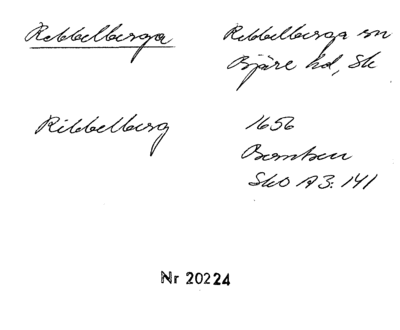 Rebbelberga
Rebbelberga sn
Bjäre hd, Sk
Ribbelberg
1656
SkO A3: 141
Nr 20224